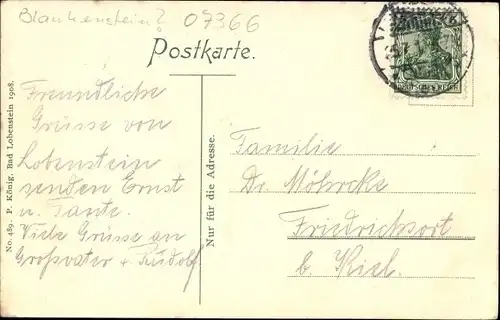 Blankenstein? 07366
Postkarte.
Freundliche
Grüsse von
Lobenstein
senden Ernst
u. Tante.
Viele Grüsse an
Großvater + Rudolf.
No. 489 · P. König, Bad Lobenstein 1908.
Nur für die Adresse.
Familie
Dr. Möhrcke
Friedrichsort
b. Kiel.